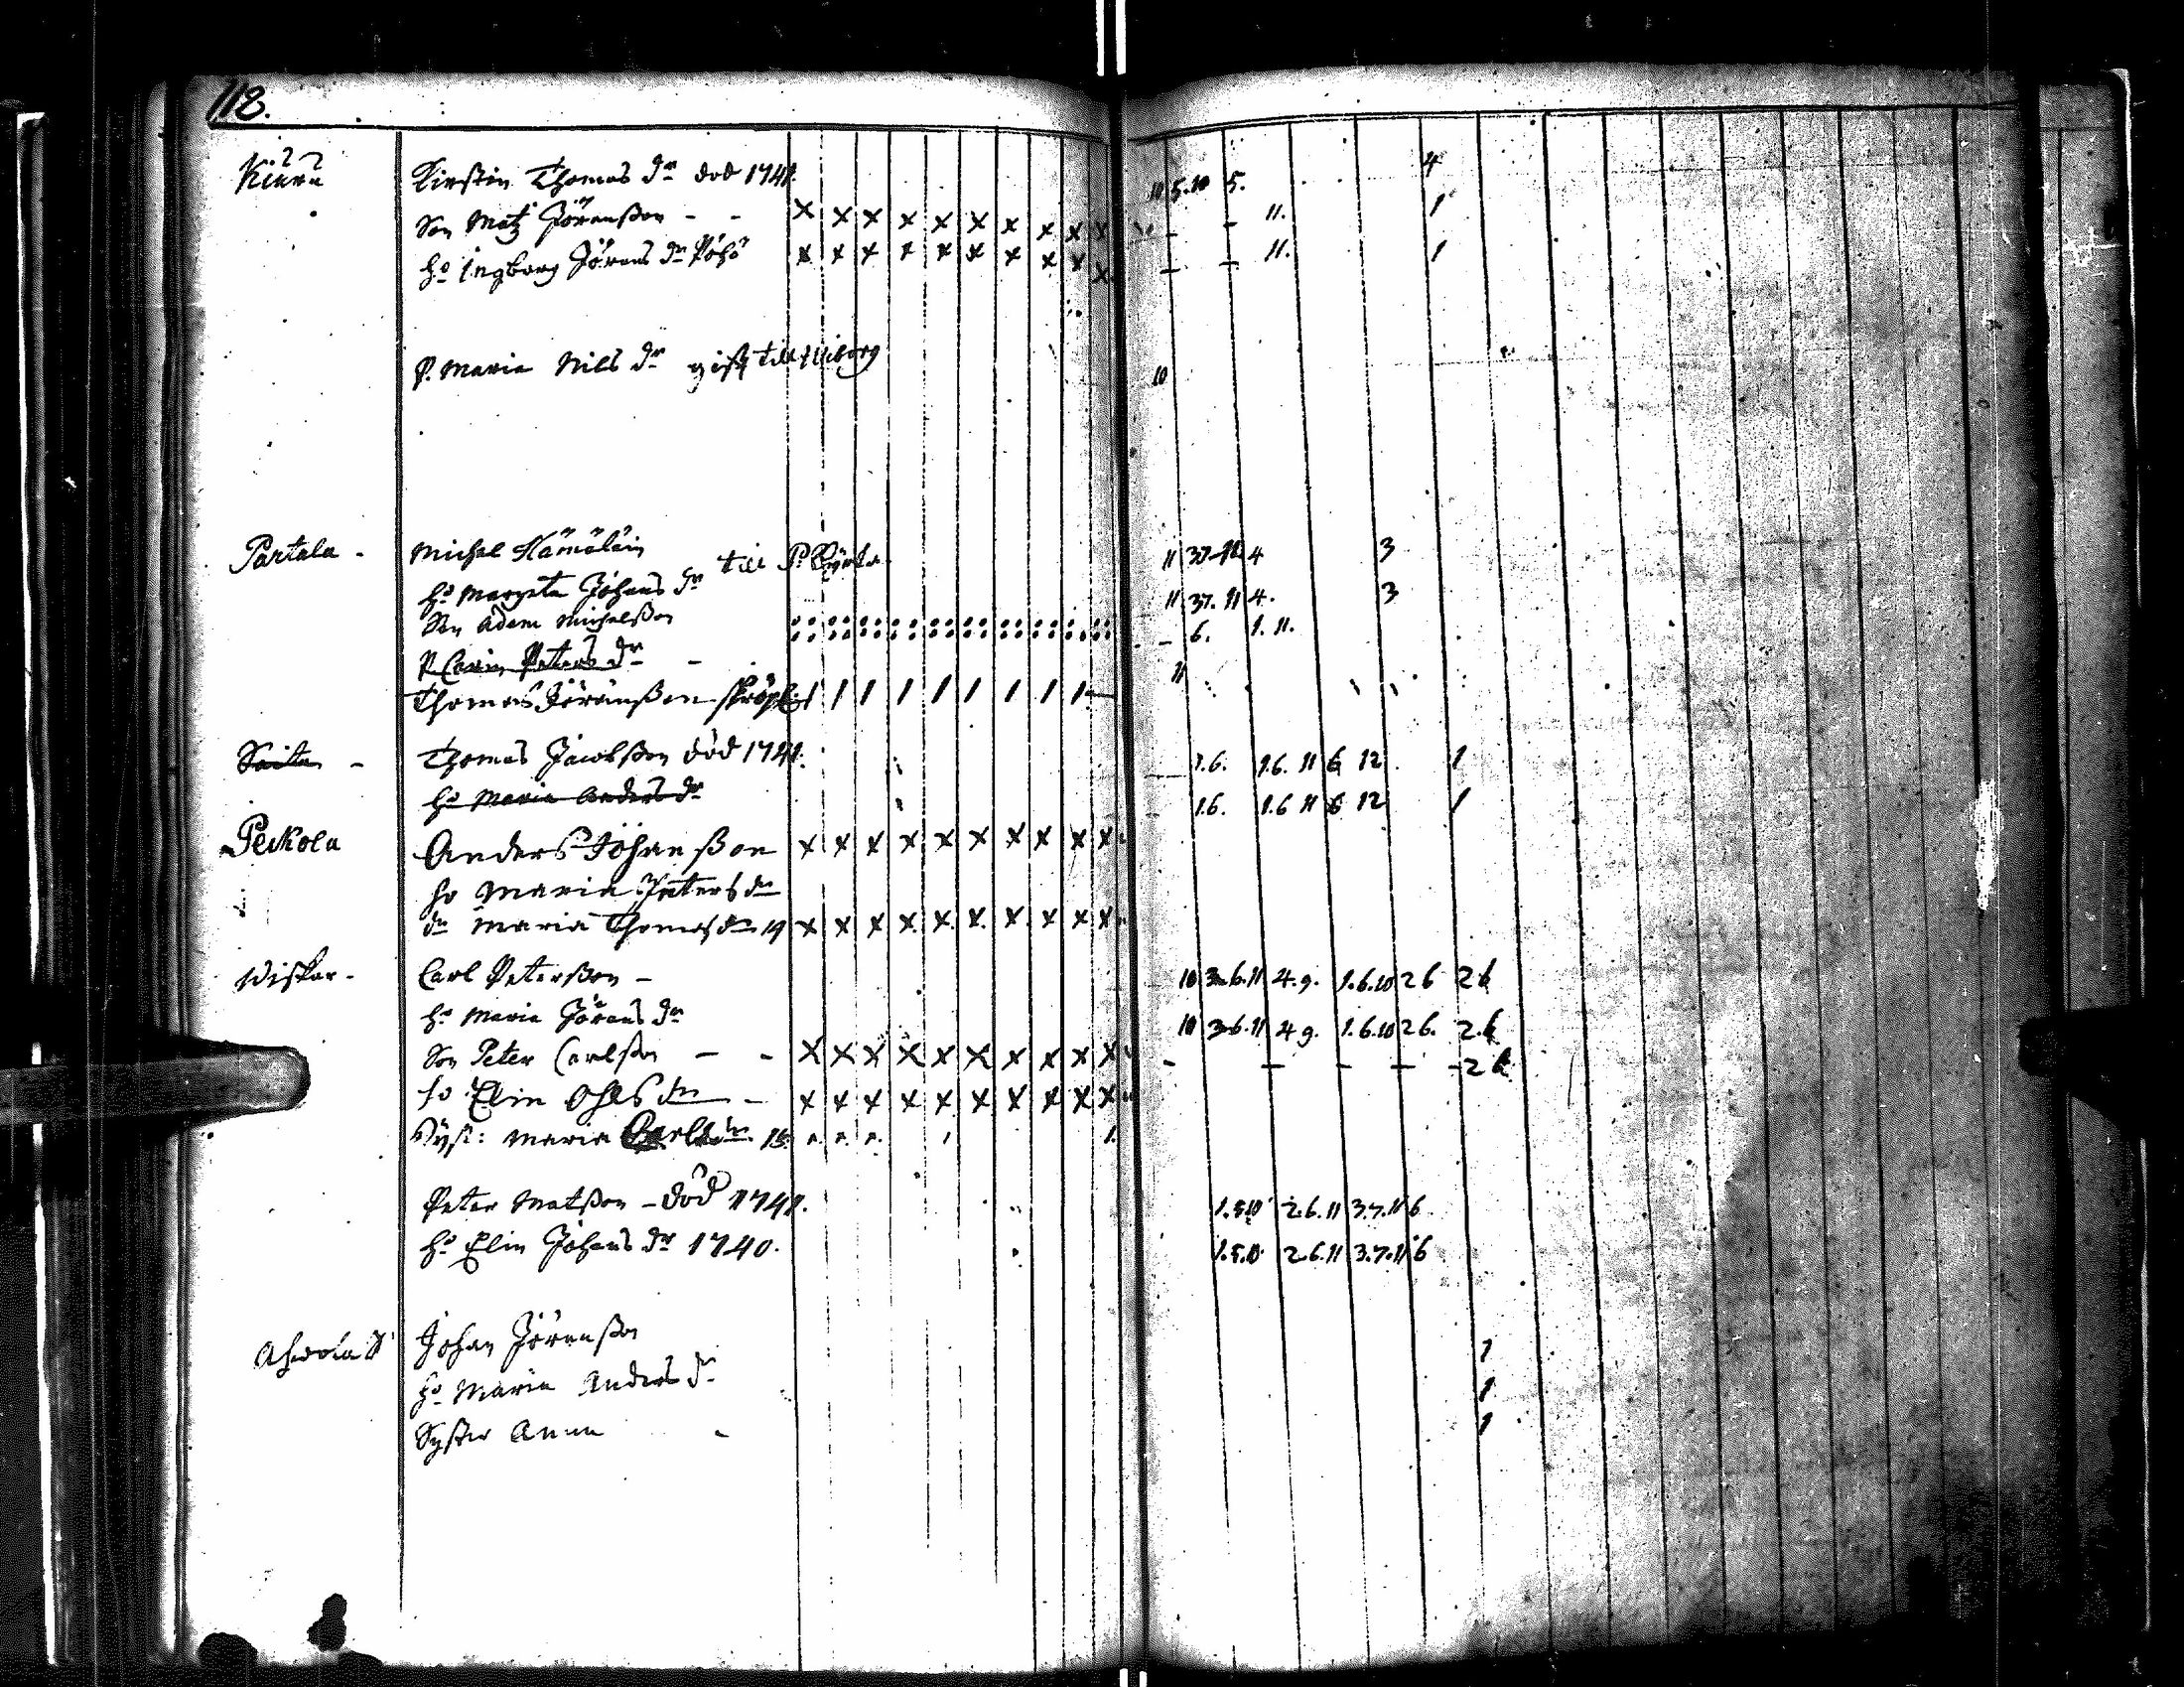 118.
Kiuru Kirstin Thomas dr död 1741. 10 5.10 5. 4
Son Matz Jöransson - - x x x x x x x x x x - - 11. 1
ho Ingborg Jörans dr x x x x x x x x x x - - 11. 1
P. Maria Nils dr gift till Wiborg 10
Partala - Michel Hämäläin till 11 37.11 4 3
ho Margeta Johans dr 11 37.11 4. 3
Son Adam Michelsson - 6. 1.11.
P Carin Peters dr - 11
Thomas Jöransson / / / / / / / / / —
Saita - Thomas Jacobsson död 1741. 1.6. 1.6.11 6 12 1
ho Maria Anders dr 1.6. 1.6 11 6 12 1
Peckola Anders Johansson x x x x x x x x x x
ho Maria Peters dr
dr Maria Thomas dr 19 x x x x x x x x x x
Wiskar - Carl Petersson - 10 3.6.11 4.9. 1.6.10 2 6 2 6
ho Maria Jörans dr 10 3.6.11 4 9. 1.6.10 2 6. 2.6
Son Peter Carlsson - - x x x x x x x x x x - - - - - 2 6
ho Elin Ohls dr - x x x x x x x x x x
Syst: Maria Carls dr 15.
Peter Matsson - död 1741. 1.5.10 2.6.11 3.7.11 6
ho Elin Johans dr 1740. 1.5.10. 2.6.11 3.7.11 6
Johan Jöransson 1
ho Maria Anders dr 1
Syster Anna - 1